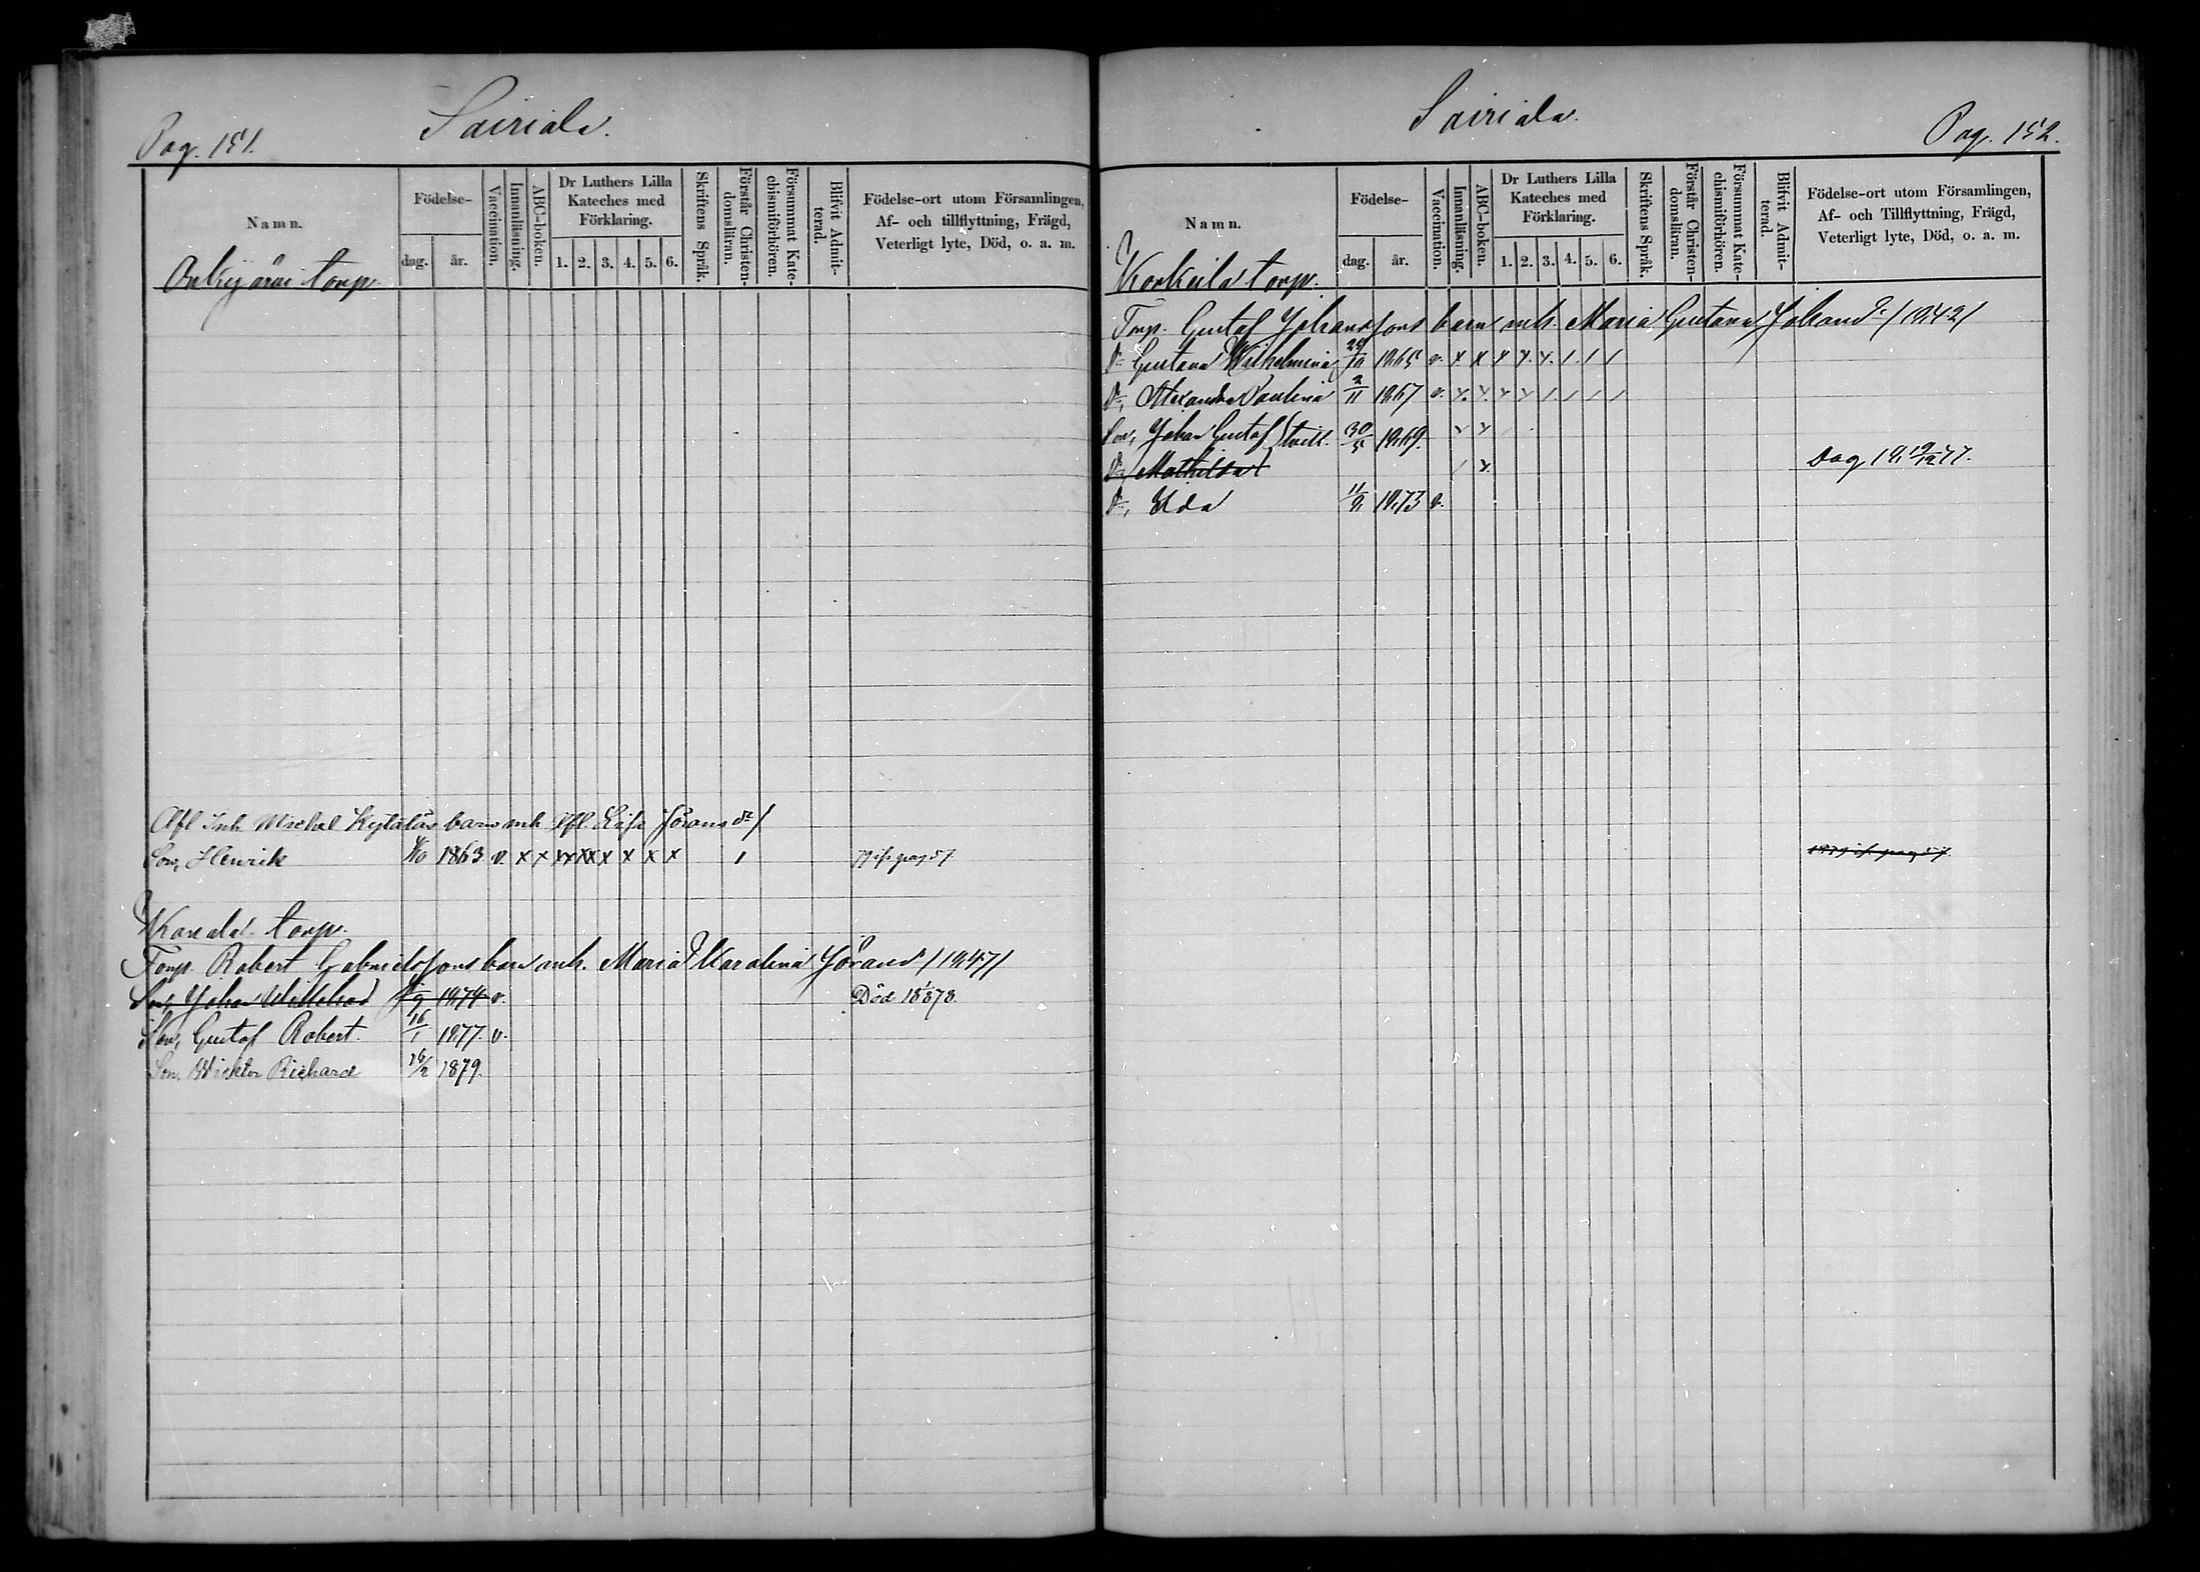 Pag. 151.
Sairiala.
Namn.
Födelse-
dag.
år.
Vaccination.
Innanläsning.
ABC-boken.
Dr Luthers Lilla
Kateches med
Förklaring.
1. 2. 3. 4. 5. 6.
Skriftens Språk.
Förstår Christen-
domsläran.
Försummat Kate-
chismiförhören.
Blifvit Admit-
terad.
Födelse-ort utom Församlingen,
Af- och tillflyttning, Frägd,
Veterligt lyte, Död, o. a. m.
torp.
Afl. Inh. Michel barn enk. Lisa Görans dr /
Son, Henrik 1863 v. x x x x x x x x 1 pag 57
torp.
Torp. Robert Gabrielssons barn m. h. Maria Karolina Görans d. /1847/
Son, Johan 9 1874 v. Död 1878.
Son, Gustaf Robert. 16/1 1877. v.
Son, Wicktor Richard 26/2 1879.
Sairiala.
Pag. 152.
Namn.
Födelse-
dag.
år.
Vaccination.
Innanläsning.
ABC-boken.
Dr Luthers Lilla
Kateches med
Förklaring.
1. 2. 3. 4. 5. 6.
Skriftens Språk.
Förstår Christen-
domsläran.
Försummat Kate-
chismiförhören.
Blifvit Admit-
terad.
Födelse-ort utom Församlingen,
Af- och Tillflyttning, Frägd,
Veterligt lyte, Död, o. a. m.
Korkeila torp.
Torp. Gustaf Johanssons barn m. h. Maria Gustava Johans d. /1842/
D. Gustava Wilhelmina 1865 v. x x x x x / / /
D. Alexandra Paulina 2/11 1867 v. x x x x / / / /
Son, Johan Gustaf tvill. 30/5 1869. x x
D. Mathilda / x
D. Ida 11/9 1873 v.
1879 pag 57.